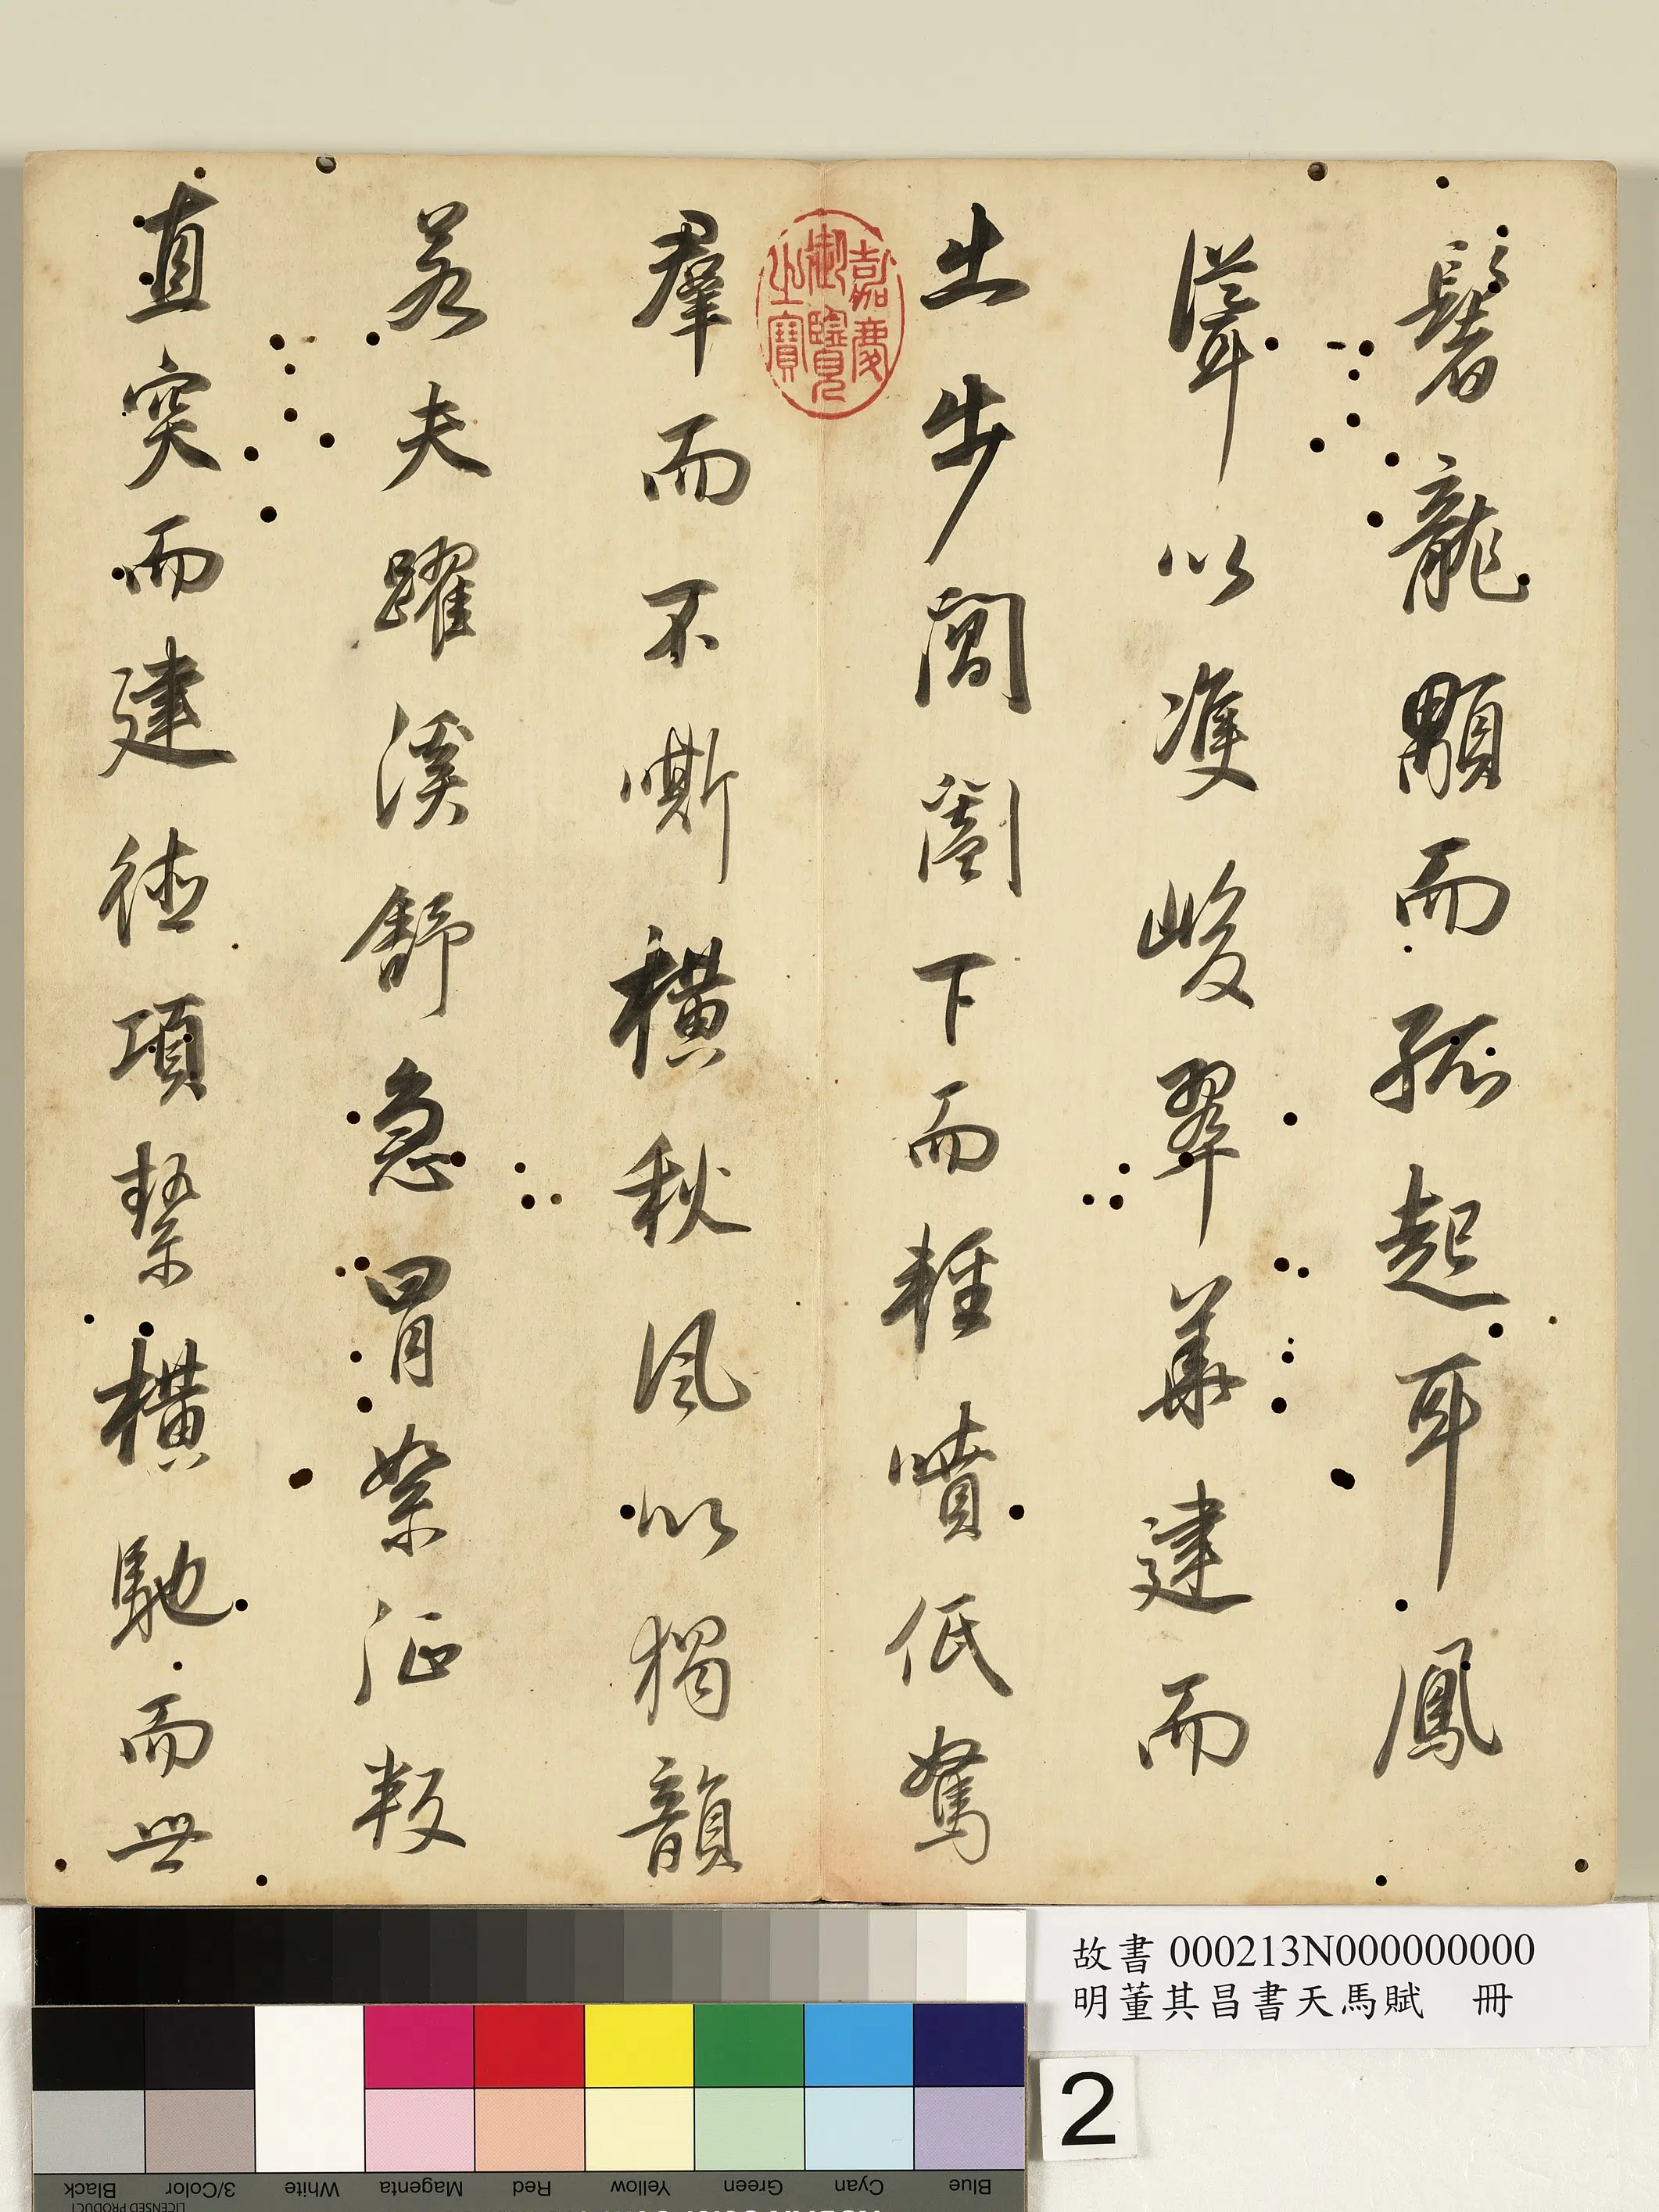 鬐龍顒而孤起耳鳳
聳以雙峻翠華建而
出步閶闔下而輕噴低駑
羣而不嘶橫秋風以獨韻
若夫躍溪舒急冒絮征叛
直突而建德項縶橫馳而世
嘉慶
御覽
之寶
故書 000213N000000000
明董其昌書天馬賦 冊
2
Black
3/Color
White
Magenta
Red
Yellow
Green
Cyan
Blue
LICENSED PRODUCT